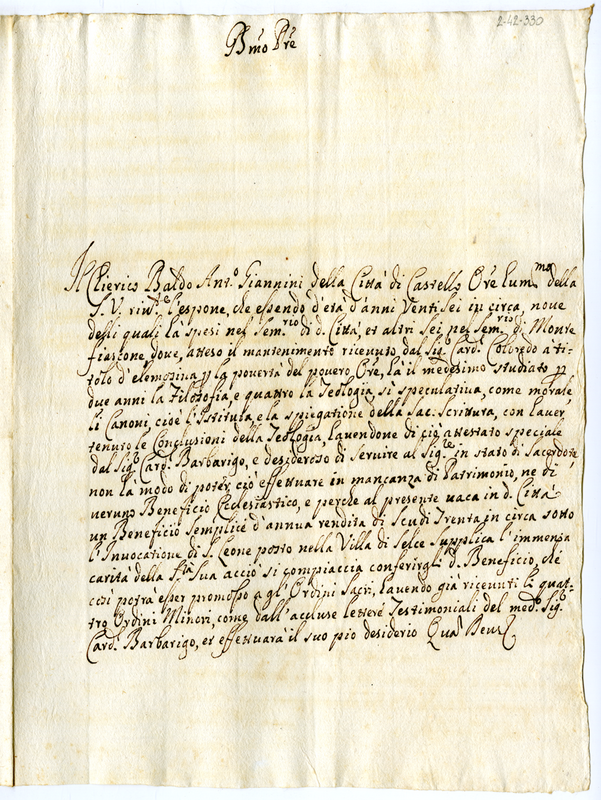 2-42-330
B.mo Pre
Il Clerico Baldo Ant.o Giannini della Città di Castello Ore hum.mo della
S. V. riv.te l'espone, che essendo d'età d'anni Venti sei in circa, nove
degli quali hà spesi nel Sem.rio di d. Città, et altri sei nel Sem.rio di Monte
fiascone, dove, atteso il mantenimento ricevuto dal Sig.r Card. Coloredo à ti-
tolo d'elemosina p la povertà del povero Ore, hà il medesimo studiato p
due anni la Filosofia, e quattro la Teologia, sì speculativa, come morale,
li Canoni, cioè l'Istituta, e la spiegatione della Sac. Scrittura, con haver
tenuto le Conclusioni della Teologia, havendone di ciò attestato speciale
dal Sig.r Card. Barbarigo, e desideroso di servire al Sig.re in stato di Sacerdote,
non hà modo di poter ciò effettuare in mancanza di Patrimonio, ne di
veruno Beneficio Ecclesiastico, e perche al presente vaca in d. Città
un Beneficio semplice d'annua rendita di Scudi Trenta in circa sotto
l'Invocatione di S. Leone posto nella Villa di Selce supplica l'immensa
carità della S.tà Sua acciò si compiaccia conferirgli d. Beneficio, che
così potrà esser promosso a gl'Ordini Sacri, havendo già ricevuti li quat-
tro Ordini Minori, come dall'accluse lettere Testimoniali del med. Sig.r
Card. Barbarigo, et effettuarà il suo pio desiderio Qua Deus